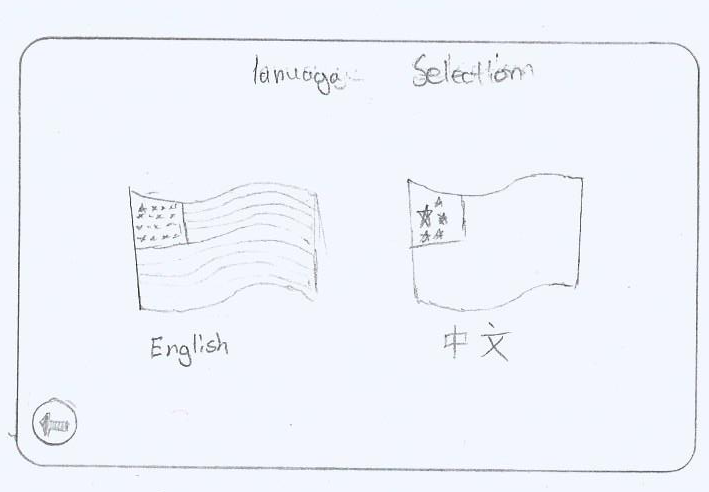 lanuage Selection
English
中文